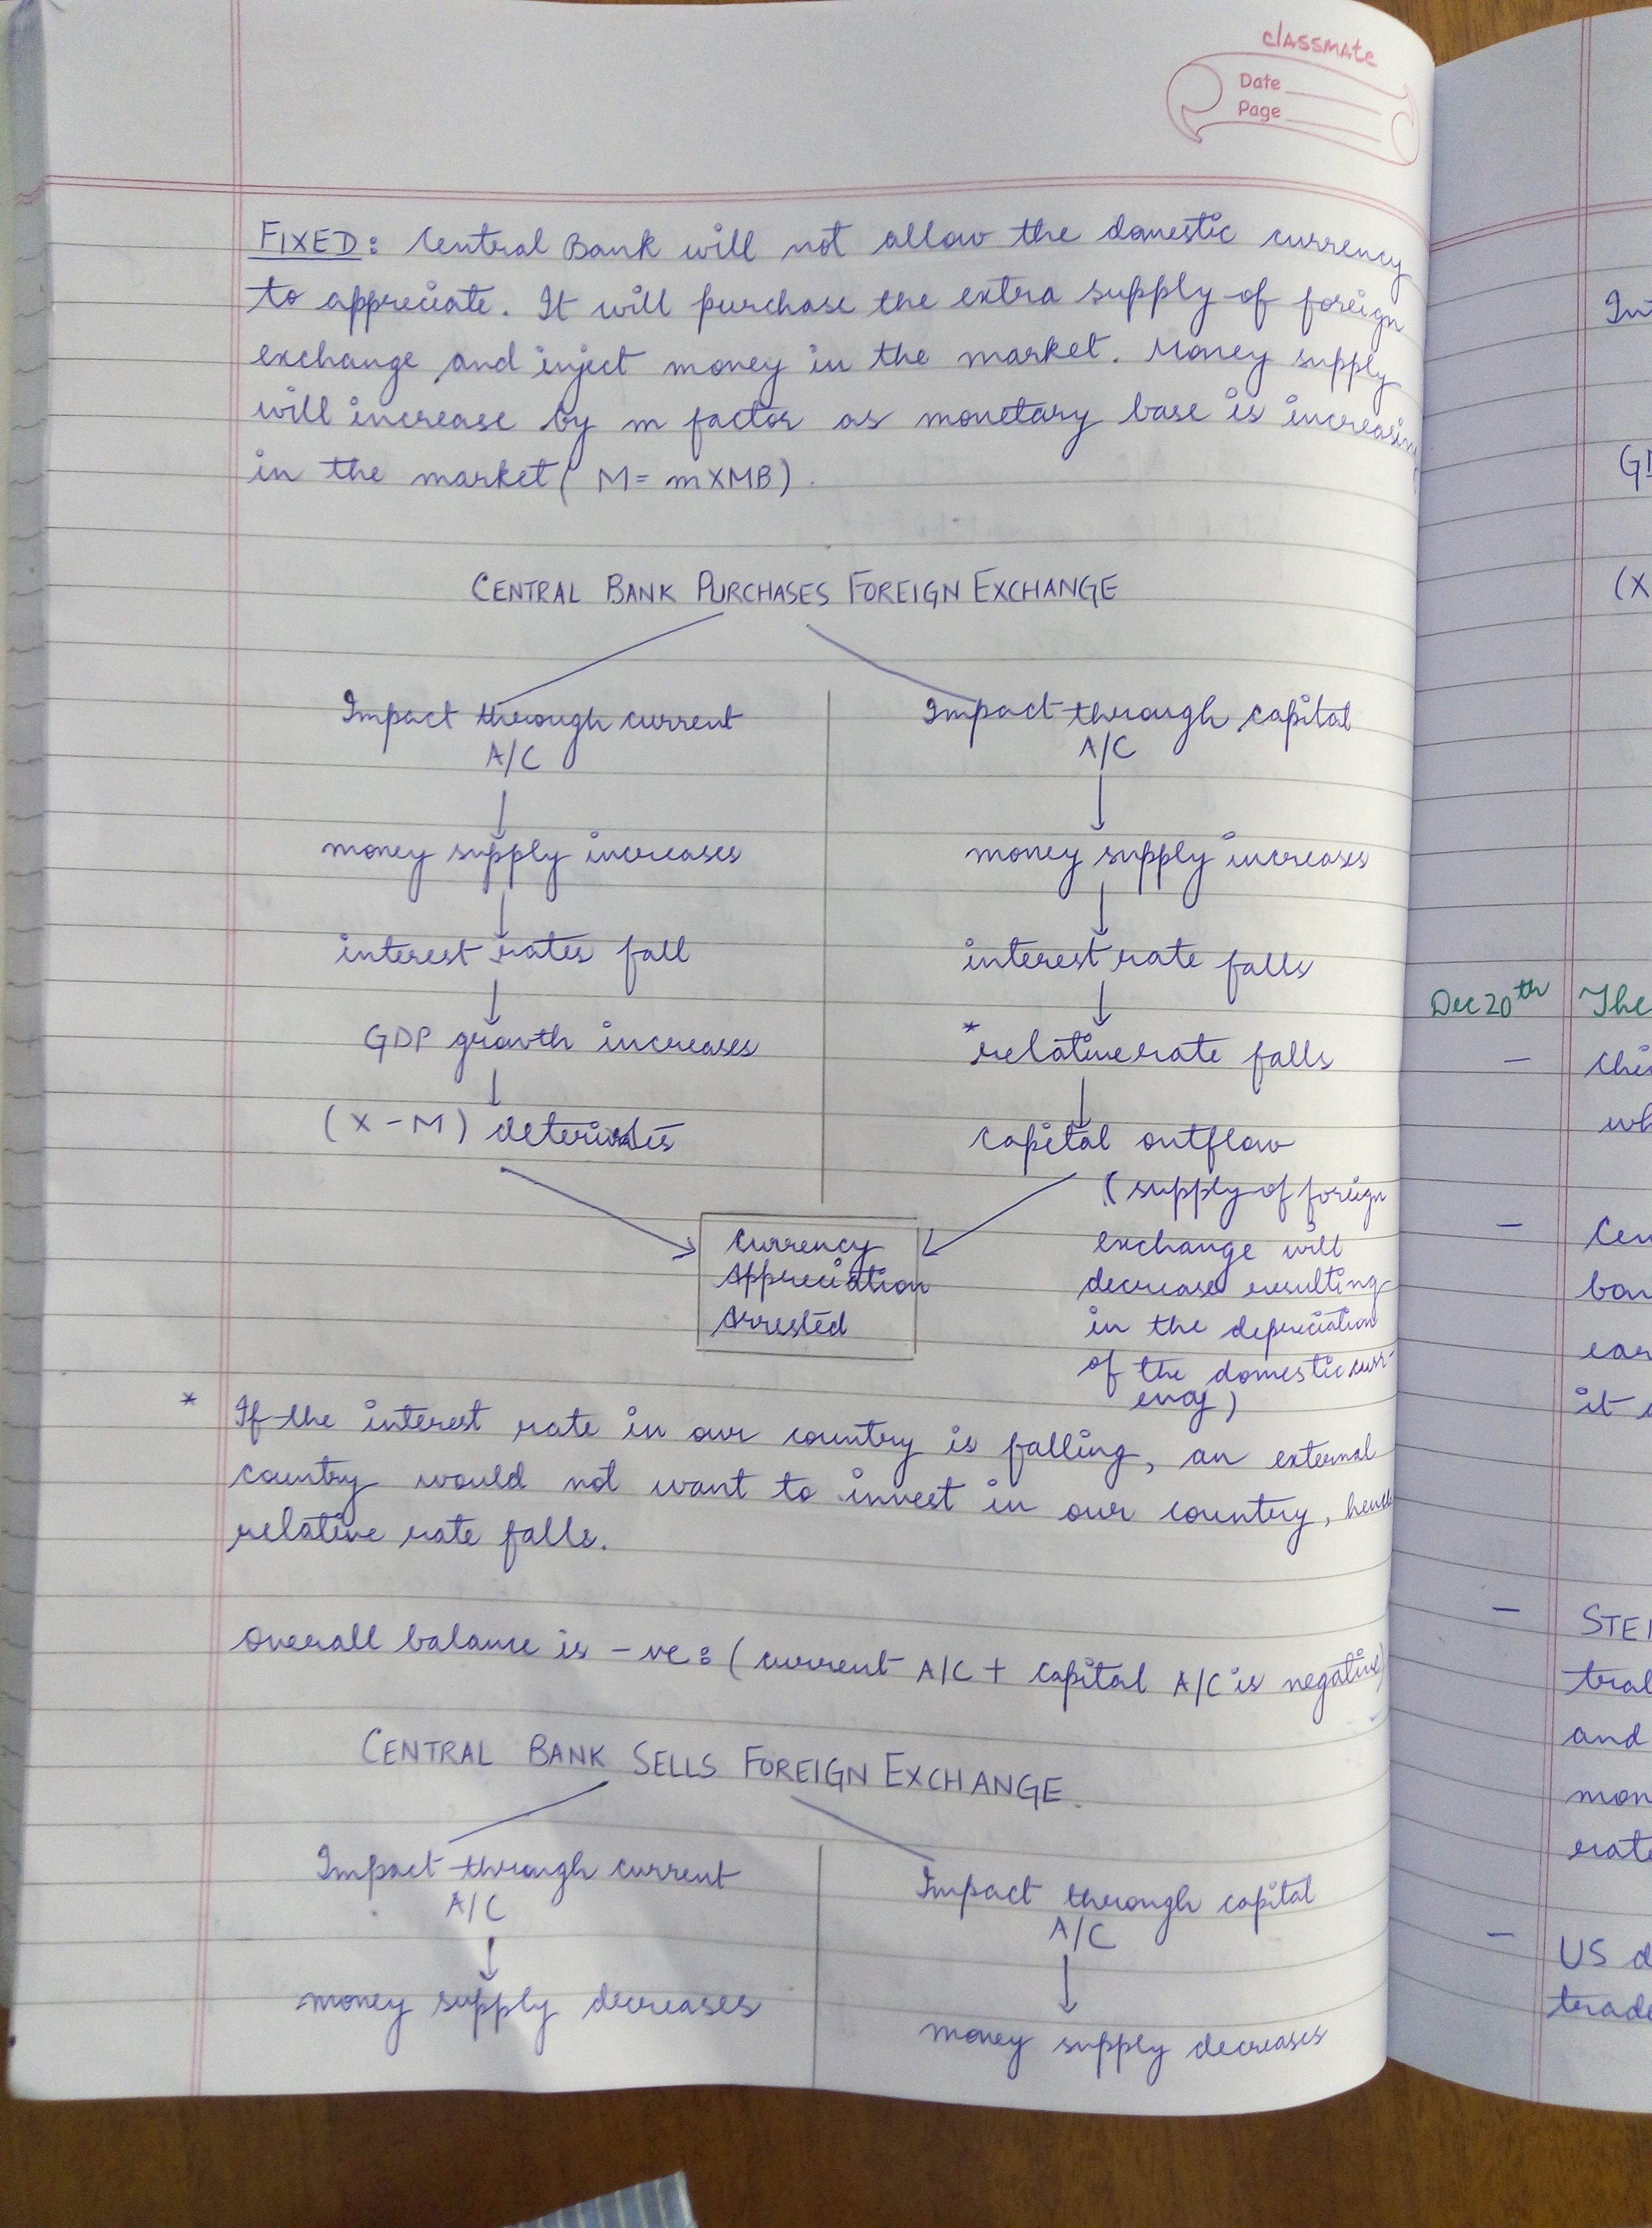 classmate
Date
Page
FIXED: Central Bank will not allow the domestic currency
to appreciate. It will purchase the extra supply of foreign
exchange and inject money in the market. Money supply
will increase by m factor as monetary base is increasing
in the market ( M = m X MB) .
CENTRAL BANK PURCHASES FOREIGN EXCHANGE
Impact through current
A/C
money supply increases
interest rates fall
GDP growth increases
(X - M)
Impact through capital
A/C
money supply increases
interest rate falls
*relative rate falls
capital outflow
(supply of foreign
exchange will
decrease resulting
in the depreciation
of the domestic curr-
ency)
Currency
Appreciation
Arrested
* If the interest rate in our country is falling, an external
country would not want to invest in our country, hence
relative rate falls.
Overall balance is -ve: (current A/C + capital A/C is negative)
CENTRAL BANK SELLS FOREIGN EXCHANGE.
Impact through current
A/C
money supply decreases
Impact through capital
A/C
money supply decreases
Int
GD
(X
Dec 20th The
- Chi
wh
- Cen
ban
ear
it
- STE
tral
and
mon
rate
- US d
trade